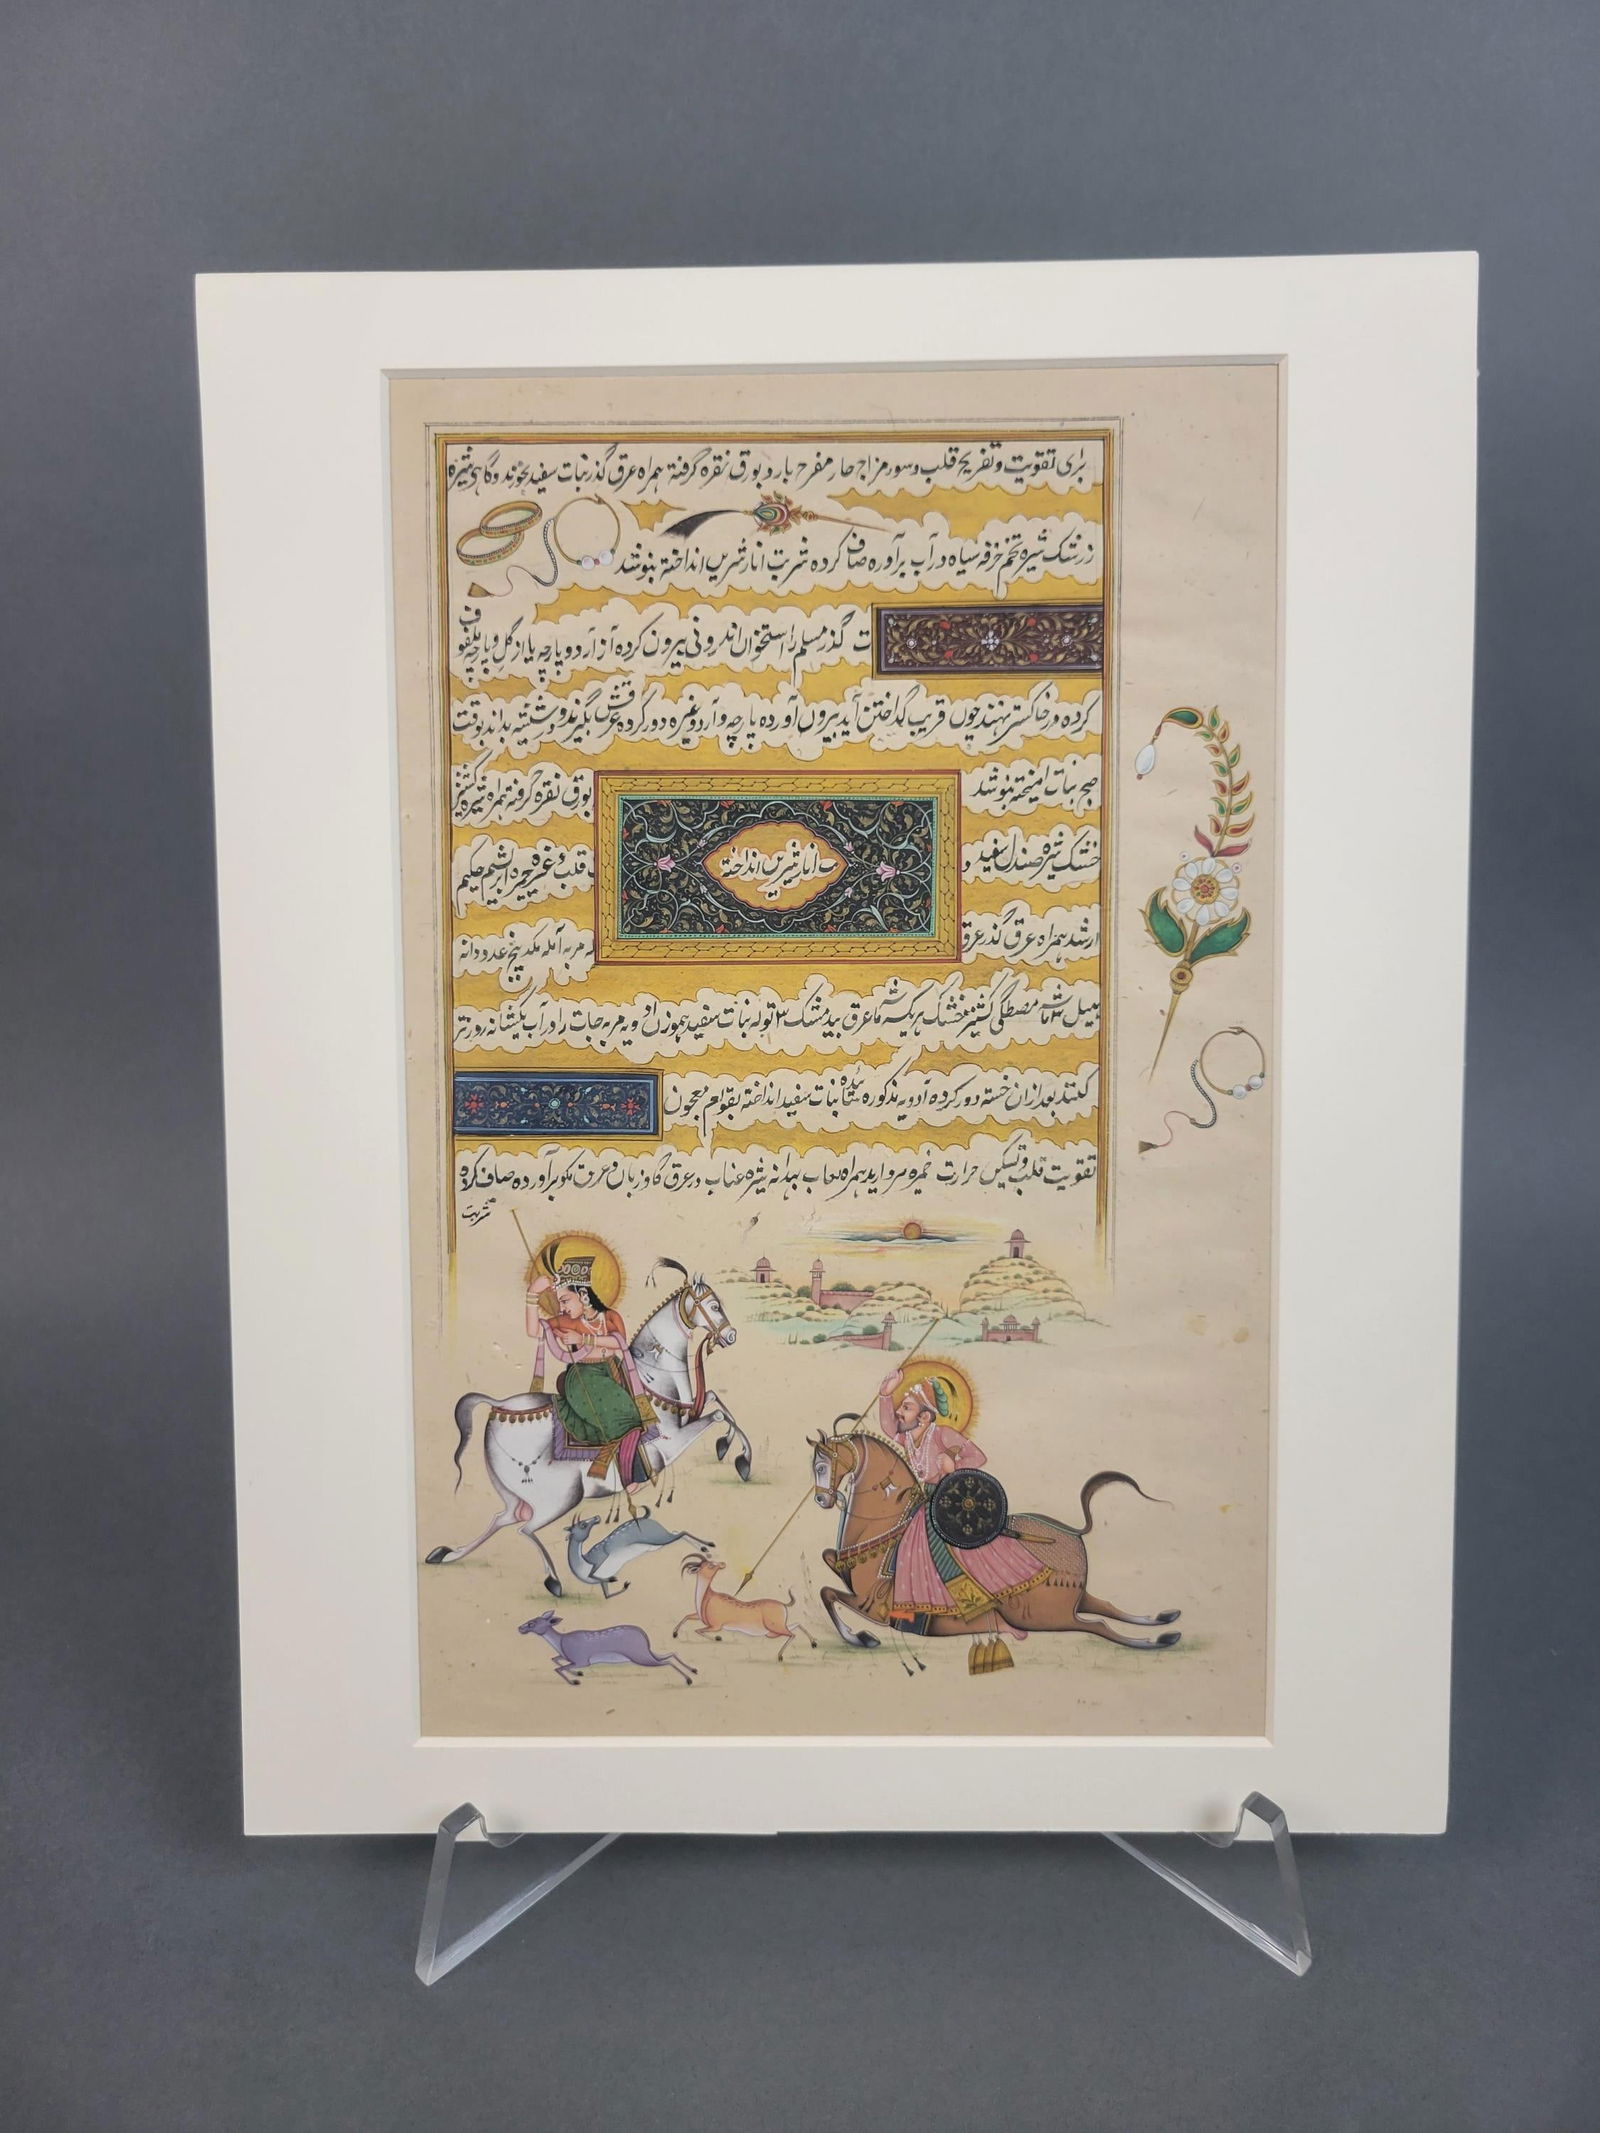 برای تقویت و تفریح قلب و سور مزاج حار مفرح بارد بورق نقره گرفته همراه عرق گذر نبات سفید بخورند و گاهی شیره
زرشک شیره تخم خرفه سیاه در آب برآورده صاف کرده شربت انار شیریں انداخته بنوشند
ت گذر مسلم را استخوان اندرونی بیرون کرده آنرا آرد و پارچه یا از گل و پارچه ملفوف
کرده در خاکستر نهند چوں قریب گداختن آید بیروں آورده پارچه و آرد و غیره دور کرده عرقش بگیرند و در شیشه بدارند بوقت
صبح نبات امیخته بنوشند
بورق نقره گرفته همراه شیره کشنیز
خشک شیره صندل سفید و
قلب و غیره خمیره ابریشم حکیم
ت انار شیریں انداخته
ارشد همراه عرق گذر عرق
له مربه آمله یکد پنج عدد دانه
هیل ۳ ماشه مصطگی کشنیز خشک هر یک شش ماشه عرق بید مشک ۳ توله نبات سفید هموزن ادویه مربه جات را در آب یکشبانه روز تر
کنند بعد ازان خسته دور کرده ادویه مذکوره نبات سفید انداخته بقوام معجون
تقویت قلب و تسکیں حرارت خمیره مروارید همراه لعاب بهدانه شیره عناب در عرق گاوزبان و عرق مکو برآورده صاف کرده
شربت